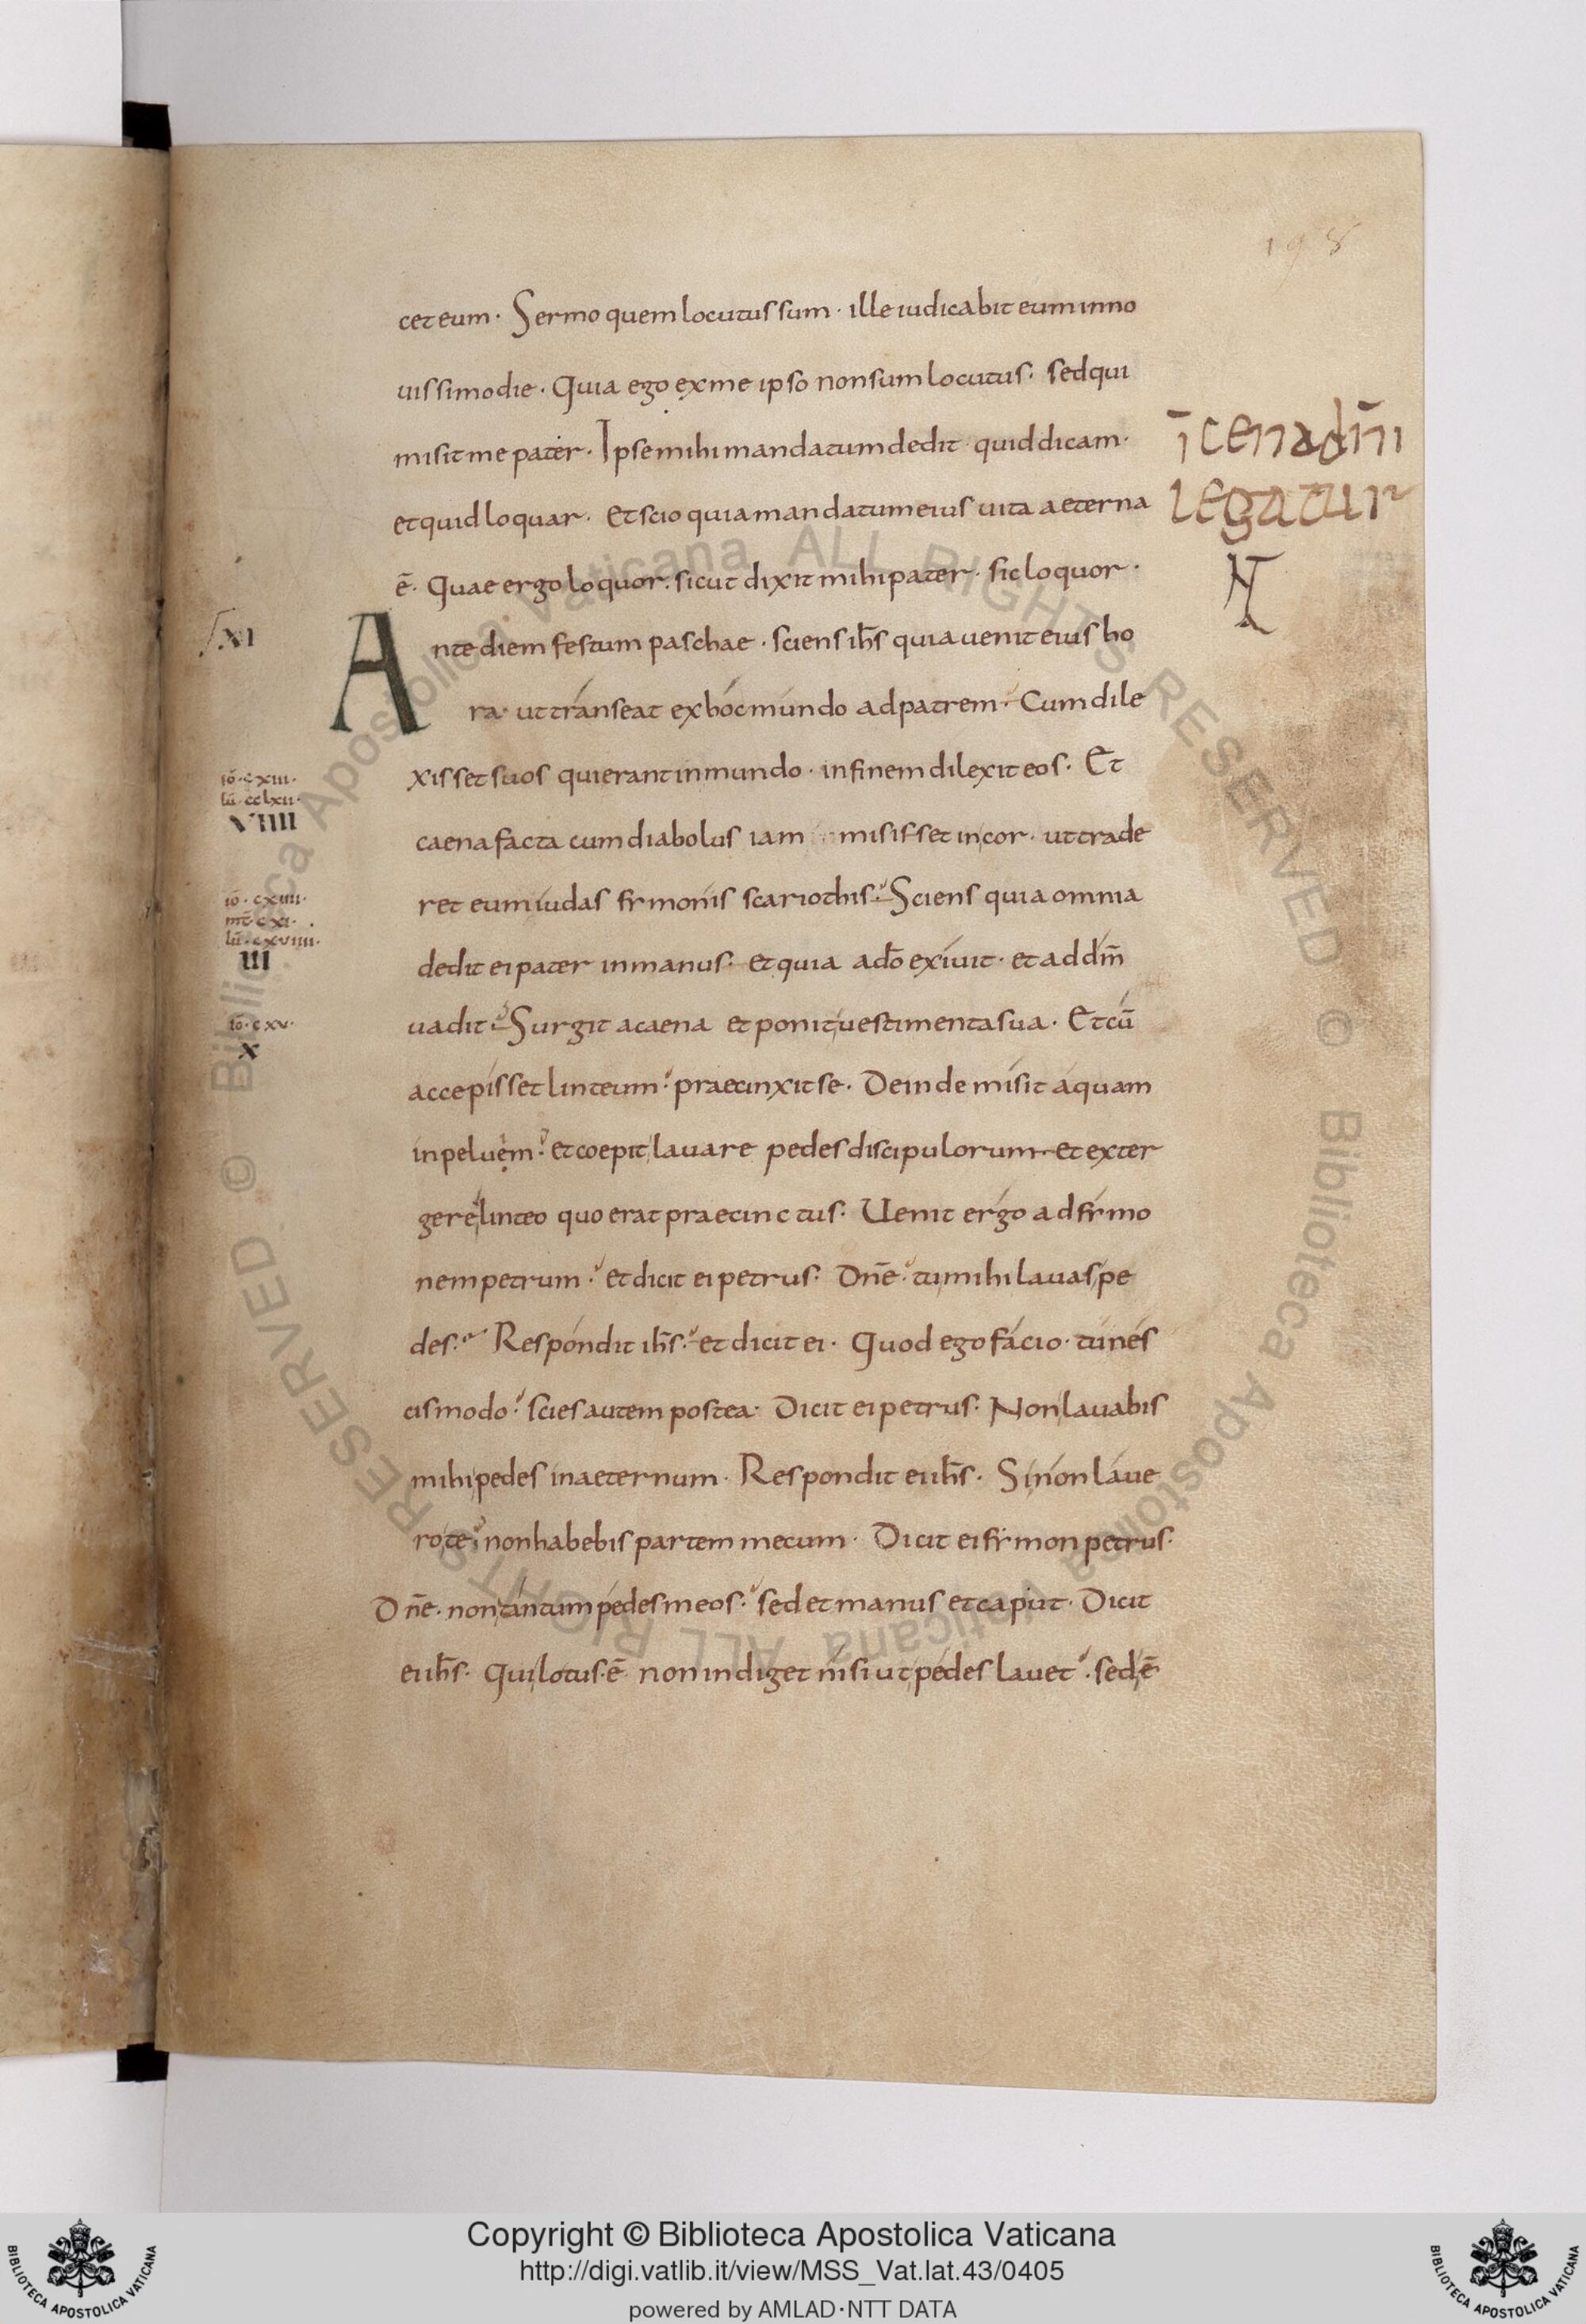 198
cet eum. Sermo quem locutus sum. ille iudicabit eum in no
uissimo die. Quia ego ex me ipso non sum locutus. sed qui
misit me pater. Ipse mihi mandatum dedit quid dicam.
et quid loquar. Et scio quia mandatum eius uita aeterna
ē. Quae ergo loquor. sicut dixit mihi pater. sic loquor.
Ante diem festum paschae. sciens ih̄s quia uenit eius ho
ra. ut transeat ex hoc mundo ad patrem. Cum dile
xisset suos qui erant in mundo. in finem dilexit eos. Et
caena facta cum diabolus iam misisset in cor. ut trade
ret eum iudas simonis scariothis. Sciens quia omnia
dedit ei pater in manus. et quia a dō exiuit. et ad dm̄
uadit. Surgit a caena et ponit uestimenta sua. Et cū
accepisset linteum. praecinxit se. Deinde misit aquam
in peluem. et coepit lauare pedes discipulorum et exter
gere linteo quo erat praecinctus. Uenit ergo ad simo
nem petrum. et dicit ei petrus. Dn̄e. tu mihi lauas pe
des. Respondit ih̄s. et dicit ei. Quod ego facio. tu nes
cis modo. scies autem postea. Dicit ei petrus. Non lauabis
mihi pedes in aeternum. Respondit ei ih̄s. Si non laue
ro te. non habebis partem mecum. Dicit ei simon petrus.
Dn̄e. non tantum pedes meos. sed et manus et caput. Dicit
ei ih̄s. Qui lotus ē. non indiget nisi ut pedes lauet. sed ē
ī cena dn̄i
legatur
XI
iō. cxiii.
lū. cclxii.
VIIII
iō. cxiiii.
mt̄ cxi.
lū. cxviiii.
III
iō. cxv.
X
© Biblioteca Apostolica Vaticana ALL RIGHTS RESERVED
© Biblioteca Apostolica Vaticana ALL RIGHTS RESERVED
Copyright © Biblioteca Apostolica Vaticana
http://digi.vatlib.it/view/MSS_Vat.lat.43/0405
powered by AMLAD·NTT DATA
BIBLIOTECA APOSTOLICA VATICANA
BIBLIOTECA APOSTOLICA VATICANA